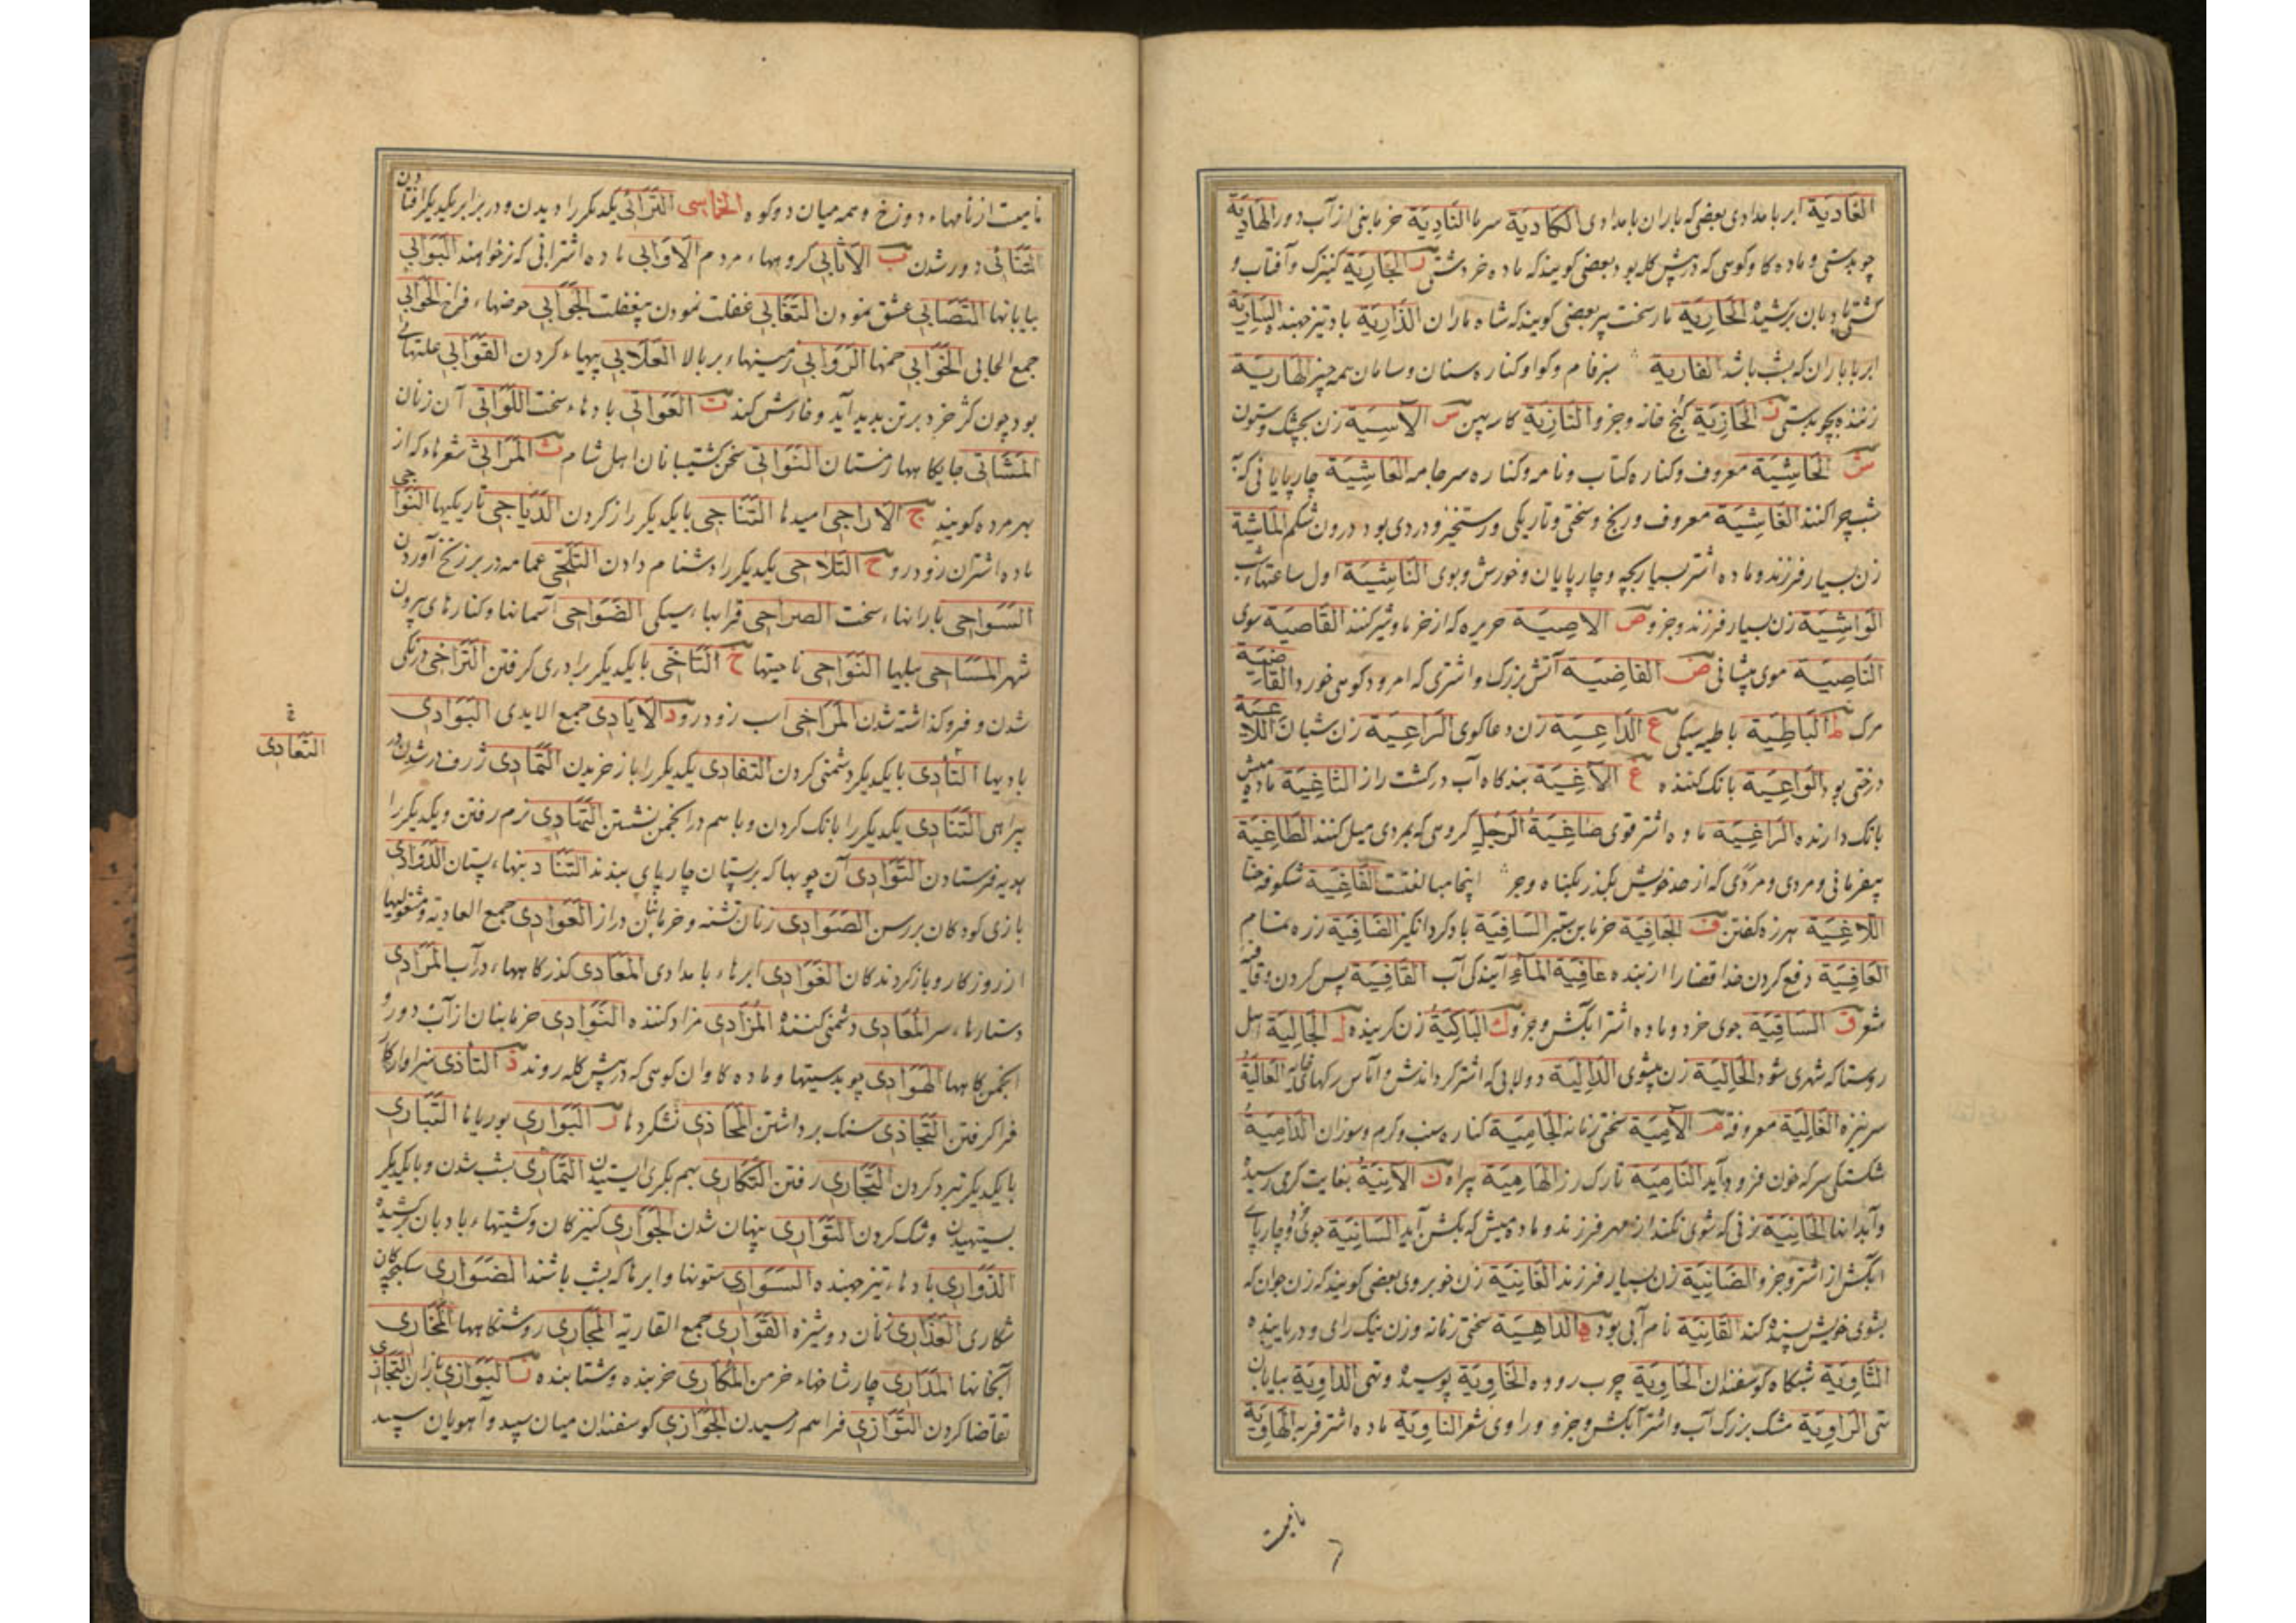 الغَادِيَة ابر بامدادی بعضی که باران بامدادی الكَادِيَة سرما النَّادِيَة خرمابنی از آب دور الهَادِيَة
چوبدستی و ماده کاو کوهی که در پیش کله بود بعضی کویند که ماده خر دشتی ر الجَارِيَة کنیزک و آفتاب و
کشتی بادبان برکشیده الحَارِيَة مار سخت پیر بعضی کویند که شاه ماران الذَّارِيَة باد تیز جهنده السَّارِيَة
ابر با باران که بشب باشد القاریة سبزفام و کواو کناره سنان و سامان همه چیز الهَارِيَة
زننده بچوبدستی ز الحَازِيَة کنج خانه و جز و النَّازِيَة کاسه پهن س الآسِيَة زن بچشک و ستون
ش الحَاشِيَة معروف و کناره کتاب و نامه و کناره سر جامه العَاشِيَة چارپایانی که
شب چرا کنند الغَاشِيَة معروف و رنج و سختی و تاریکی و رستخیز و دردی بود درون شکم المَاشِيَة
زن بسیار فرزند و ماده اشتر بسیار بچه و چارپایان و خورش و بوی النَّاشِيَة اول ساعتهاء شب
الوَاشِيَة زن بسیار فرزند و جز و ص الاصِيَة حریره که از خرما و شیر کنند القَاصِيَة سوی
النَّاصِيَة موی پیشانی ض الغَاضِيَة آتش بزرک و اشتری که امرود کوهی خورد القَاضِيَة
مرک ط البَاطِيَة باطیه سیکی ع الدَّاعِيَة زن دعاکوی الرَّاعِيَة زن شبان اللَّاعِيَة
درختی بود الوَاعِيَة بانک کننده غ الآغِيَة بندکاه آب در کشت زار الثَّاغِيَة ماده میش
بانک دارنده الرَّاغِيَة ماده اشتر قوی صَاغِيَةُ الرَّجُلِ کروهی که بمردی میل کنند الطَّاغِيَة
بیفرمانی و مردی و مردمی که از حد خویش بگذرد بگناه و جز اینجا مبالغتست الفَاغِيَة شکوفه حنا
اللَّاغِيَة هرزه کفتن ف الجَافِيَة خرمابن ستبر السَّافِيَة باد کرد انکیز الضَّافِيَة زره تمام
العَافِيَة دفع کردن خدا قضا را از بنده عَافِيَةُ المَاءِ آیندکان آب القَافِيَة پس کردن و قافیه
شعر ق السَّاقِيَة جوی خرد و ماده اشتر آبکش و جز و ك البَاكِيَةُ زن کرینده ل الجَالِيَة اهل
روستا که شهری شود الخَالِيَة زن بیشوی الدَّالِيَة دولابی که اشتر کرداندش و العَالِيَةُ
سر نیزه الغَالِيَة معروفة م الآمِيَة سختی زمانه الحَامِيَة کناره سنب و کرم و سوزان الدَّامِيَةُ
شکستکی سر که خون فرود آید النَّامِيَة تارک رز الهَامِيَة پیراه ن الآنِيَةُ بغایت کرمی رسیده
و آبدانها الحَانِيَة زنی که شوی نکند از مهر فرزند و ماده میش که بکشن آید السَّانِيَة جوی و چارپای
آبکش از اشتر و جز و الضَّانِيَة زن بسیار فرزند الغَانِيَة زن خوبروی بعضی کویند که زن جوان که
بشوی خویش بسنده کند القَانِيَة نام آبی بود ه الدَّاهِيَة سختی زمانه و زن نیک رای و دریابنده
الثَّاوِيَة شبکاه کوسفندان الحَاوِيَة چرب روده الخَاوِيَة پوسیده و تهی الدَّاوِيَة بیابان
تهی الرَّاوِيَة مشک بزرک آب و اشتر آبکش و جز و و راوی شعر النَّاوِيَة ماده اشتر فربه الهَاوِيَة
نامیست
نامیست از نامهاء دوزخ و همه میان دو کوه الخماسی التَّرَائِي یکدیکر را دیدن و در برابر یکدیکر افتادن
التَّنَائِي دور شدن ب الاثَابِي کروهها، مردم الاَوَابِي ماده اشترانی که نر نخواهند البَوَابِي
بیابانها التَّصَابِي عشق نمودن التَّغَابِي غفلت نمودن بیغفلت الجَوَابِي حوضهاء فراخ الحَوَابِي
جمع الحابی الخَوَابِي خمها الرَّوَابِي زمینهاء بر بالا العَلَابِي پیهاء کردن القَوَابِي علتهائی
بود چون کر خرد بر تن پدید آید و خارش کند ت العَوَاتِي بادهاء سخت اللَّوَاتِي آن زنان
المَشَاتِي جایکاهها زمستان النَّوَاتِي سخن کشتیبانان اهل شام ث المَرَاثِي شعرهاء که از
بهر مرده کویند ج الاَرَاجِي امیدها التَّنَاجِي با یکدیکر راز کردن الدَّيَاجِي تاریکیها النَّوَاجِي
ماده اشتران زودرو ح التَّلَاحِي یکدیکر را دشنام دادن التَّلَحِّي عمامه در بر زنخ آوردن
السَّوَاحِي بارانهاء سخت الصراحی قرابهاء سیکی الضَّوَاحِي آسمانها و کنارهای بیرون
شهر المَسَاحِي بیلها النَّوَاحِي ناحیتها خ التَّآخِي با یکدیکر برادری کرفتن التَّرَاخِي درنکی
شدن و فروکذاشته شدن المَرَاخِي اسب زودرو د الاَيَادِي جمع الایدی البَوَادِي
بادیها التَّأَدِي با یکدیکر دشمنی کردن التفادِي یکدیکر را باز خریدن التَّمَادِي ژرف در شدن در
بیراهی التَّنَادِي یکدیکر را بانک کردن و با هم در انجمن نشستن التَّهَادِي نرم رفتن و یکدیکر را
هدیه فرستادن التَّوَادِي آن چوبها که بر پستان چارپای بندند الدَّوَادِي
بازی کودکان بر رسن الصَّوَادِي زنان تشنه و خرمابنان دراز العَوَادِي جمع العادیة و مشغولیها
از روزکار و بازکردندکان الغَوَادِي ابرهاء بامدادی المَعَادِي کذرکاهها، در آب المَرَادِي
دستارهاء سر المُعَادِي دشمنی کننده المُرَادِي مراد کننده النَّوَادِي خرمابنان از آب دور و
انجمن کاهها الهَوَادِي چوبدستیها و ماده کاوان کوهی که در پیش کله روند ذ التَّأَذِي
فرا کرفتن التَّجَاذِي سنک برداشتن المَحَاذِي نشکردها ر البَوَارِي بوریاها التَّبَارِي
با یکدیکر نبرد کردن التَّجَارِي رفتن التَّكَارِي بهم بکری ایستیدن التَّمَارِي بشب شدن و با یکدیکر
بستهیدن و شک کردن التَّوَارِي پنهان شدن الجَوَارِي کنیزکان و کشتیهاء بادبان برکشیده
الذَّوَارِي بادهاء تیز جهنده السَّوَارِي ستونها و ابرها که بشب باشند الضَّوَارِي سکبچکان
شکاری العَذَارِي زنان دوشیزه القَوَارِي جمع القاریة المَجَارِي روشنکاهها المَخَارِي
آبخانها المَدَارِي چارشاخهاء خرمن المُكَارِي خربنده و شتابنده ز البَوَازِي بازان التَّجَازِي
تقاضا کردن التَّوَازِي فراهم رسیدن الجَوَازِي کوسفندان میان سپید و آهویان سپید
التَّعَادِي